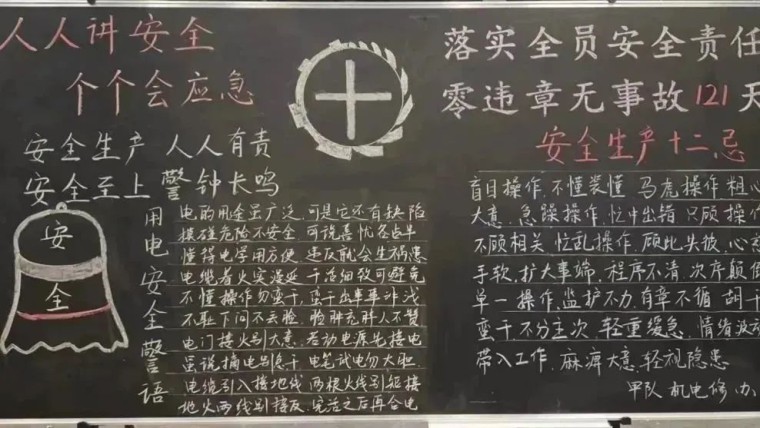 人人讲安全
个个会应急
安全生产 人人有责
安全至上 警钟长鸣
安
全
用电安全警语
电的用途虽广泛,可是它还有缺陷
摸碰危险不安全 可说喜忧各占半
懂得电学用方便 违反就会生祸患
电缆着火实漫延 干活细致可避免
不懂操作勿蛮干,蛮干出事
不耻下问不丢脸 脸肿充胖人不赞
电门接火别大意,
电笔试电勿大胆
电缆引入接地线 两根火线别
地火两线别接反 完活之后再合电
落实全员安全责任
零违章无事故121天
安全生产十二忌
盲目操作,不懂装懂 马虎操作 粗心
大意.急躁操作,忙中出错 只顾操作
不顾相关 忙乱操作,顾此失彼,心
手软,扩大事端,程序不清 次序颠倒
单一操作,监护不力,有章不循 胡干
蛮干 不分主次 轻重缓急.情绪波动
带入工作.麻痹大意,轻视隐患
甲队 机电修 办